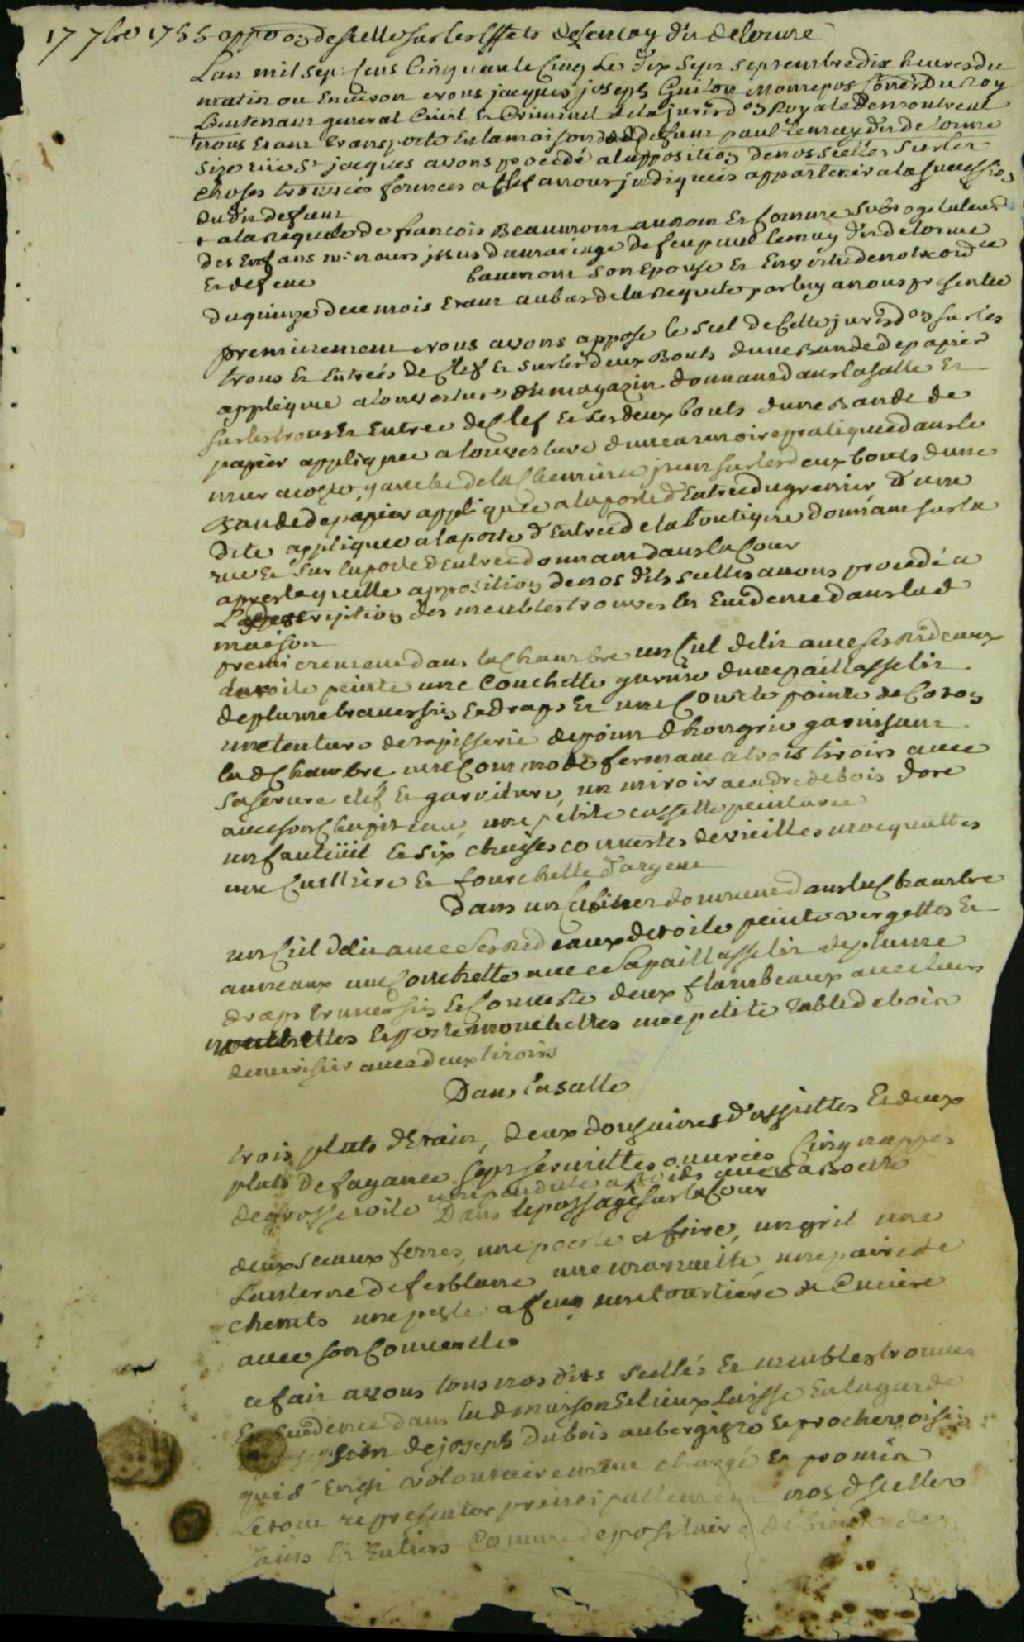 17 7bre 1755 appo on de scellés sur les effets de Lemay dit delorme
L'an mil sept Cens Cinquante Cinq Le dix sept septembre dix heures du
matin ou Environ nous jacques joseph Guiton Monrepos Coner du Roy
Lieutenant general Civil et Criminel de la jurisd on Royale de montreal
nous Etant transporté En la maison de defunt paul Lemay dit delorme
size rue St jacques avons procedé a l'apposition de nos scellés sur les
choses trouvées fermées a clef a nous jndiquées appartenir a la succession
dudit defunt
+ a la Requete de francois Beaumont au nom et comme subrogé tuteur
des Enfans mineurs jssus du mariage de feu paul lemay dit delorme
Et de feue baumont son Epouse Et En vertu de notre ord ce
du quinze de ce mois Etant au bas de la Requete par luy a nous presentée
premierement nous avons apposé le scel de Cette jurisd on sur les
trous Et Entrées de Clef Et sur les deux Bouts d'une Bande de papier
appliquée a l'ouverture du magazin donnant dans la salle Et
sur les trous Et Entrée de Clef Et les deux bouts d'une Bande de
papier appliquée a l'ouverture d'une armoire pratiquée dans le
mur a costé gauche de la Cheminée jtem sur les deux bouts d'une
Bande de papier appliquée a la porte d'Entrée du grenier d'une
dite appliquée a la porte d'Entrée de la boutique donnant sur la
rue Et sur la porte d'Entrée donnant dans la Cour
apres laquelle apposition de nos dits scellés avons procedé a
La description des meubles trouvés En Evidence dans lad
maison
premierement dans la Chambre un Ciel de lit avec ses Rideaux
de toile peinte une Couchette garnie d'une paillasse lit
de plume traversin Et draps Et une Courte pointe de Coton
une tenture de tapisserie de point d'hongrie garnissant
lad Chambre une Commode fermant a trois tiroirs avec
sa serrure clef Et garniture, un miroir a cadre de bois doré
avec son Chapiteau, une petite cassette peinturée
un fauteüil Et six chaises couvertes de vieilles mocquettes
une Cuilliere Et fourchette d'argent
Dans un Cabinet donnant dans la Chambre
un Ciel de lit avec ses Rideaux de toile peinte vergettes Et
anneaux une Couchette avec sa paillasse lit de plume
draps traversin Et Couverte deux flambeaux avec leurs
mouchettes Et porte mouchettes une petite table de bois
de merisier avec deux tiroirs
Dans la salle
trois plats d'Etain, deux douzaines d'assiettes Et deux
plats de fayance sept serviettes ouvrées Cinq nappes
de grosse toile une pendule a poids avec sa boette
Dans le passage sur la Cour
deux seaux ferrés, une poesle a frire, un gril une
Lanterne de ferblanc une marmitte, une paire de
chenets une pesle a feu une tourtiere de Cuivre
avec son Couvercle
ce fait avons tous nos dits scellés Et meubles trouvés
En Evidence dans lad maison Et lieux Laissé En la garde
de joseph dubois aubergiste Et proche voisin
qui s'En est volontairement chargé Et promis
Le tout representer principallement nos d scellés
sains Et Entiers Comme depositaire de biens de